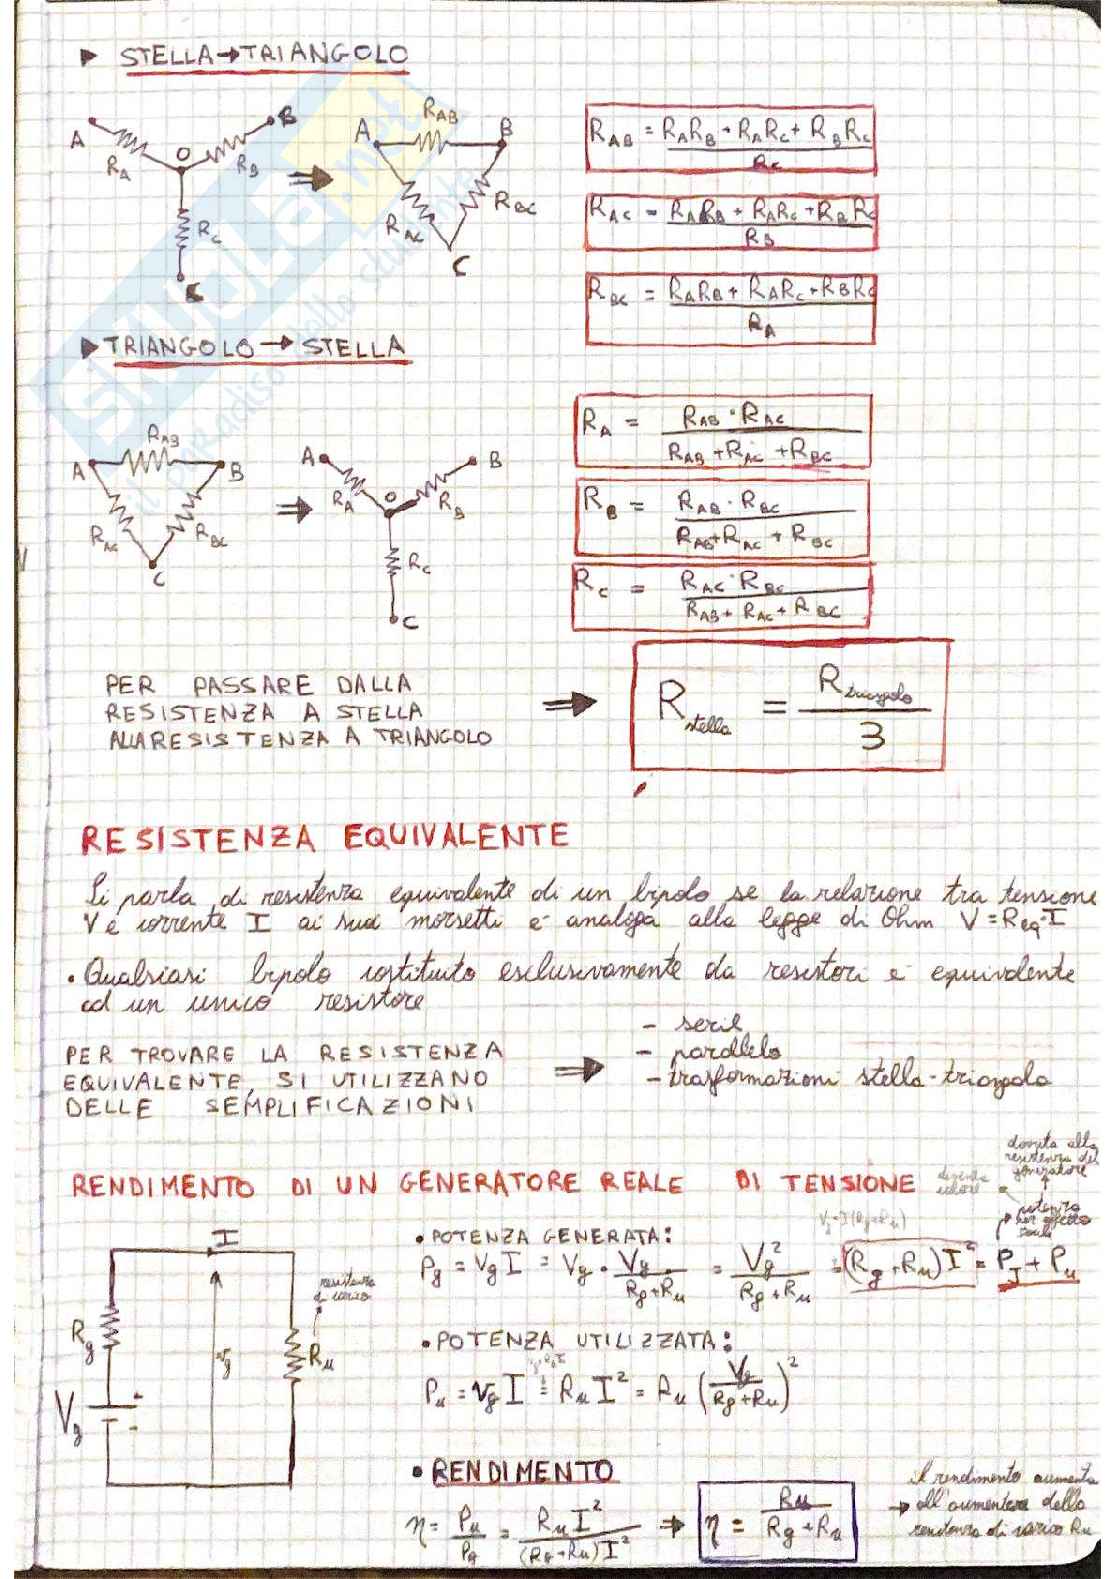 STELLA→TRIANGOLO
A R_A O R_B B R_C C
A R_AB B R_AC R_BC C
R_AB = (R_A R_B + R_A R_C + R_B R_C) / R_C
R_AC = (R_A R_B + R_A R_C + R_B R_C) / R_B
R_BC = (R_A R_B + R_A R_C + R_B R_C) / R_A
TRIANGOLO → STELLA
A R_AB B R_AC R_BC C
A R_A O R_B B R_C C
R_A = (R_AB · R_AC) / (R_AB + R_AC + R_BC)
R_B = (R_AB · R_BC) / (R_AB + R_AC + R_BC)
R_C = (R_AC · R_BC) / (R_AB + R_AC + R_BC)
PER PASSARE DALLA
RESISTENZA A STELLA
ALLA RESISTENZA A TRIANGOLO
R_stella = R_triangolo / 3
RESISTENZA EQUIVALENTE
Si parla di resistenza equivalente di un bipolo se la relazione tra tensione
V e corrente I ai suoi morsetti è analoga alla legge di Ohm V = R_eq · I
• Qualsiasi bipolo costituito esclusivamente da resistori è equivalente
ad un unico resistore
PER TROVARE LA RESISTENZA
EQUIVALENTE, SI UTILIZZANO
DELLE SEMPLIFICAZIONI
- serie
- parallelo
- trasformazioni stella-triangolo
RENDIMENTO DI UN GENERATORE REALE DI TENSIONE
dovuta alla
resistenza del
generatore
potenza
per effetto
Joule
I R_g V_g + - v_g R_u
resistenza
di carico
• POTENZA GENERATA:
V_g = I(R_g + R_u)
P_g = V_g I = V_g · V_g / (R_g + R_u) = V_g² / (R_g + R_u) = (R_g + R_u) I² = P_J + P_u
• POTENZA UTILIZZATA:
P_u = v_g I = R_u I² = R_u (V_g / (R_g + R_u))²
• RENDIMENTO
η = P_u / P_g = R_u I² / (R_g + R_u) I² ⇒ η = R_u / (R_g + R_u)
il rendimento aumenta
→ all'aumentare della
resistenza di carico R_u
SKUOLA.net
il paradiso dello studente